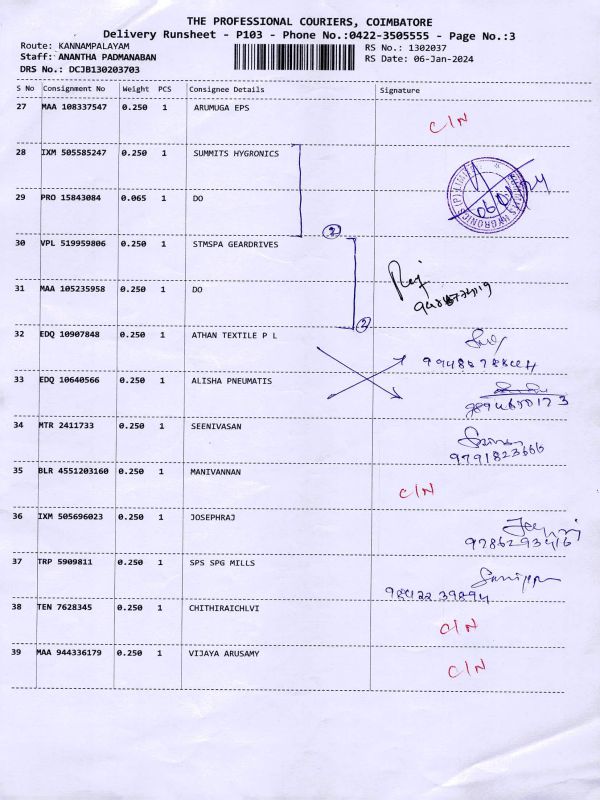 THE PROFESSIONAL COURIERS, COIMBATORE
Delivery Runsheet - P103 - Phone No.:0422-3505555 - Page No.:3
Route: KANNAMPALAYAM RS No.: 1302037
Staff: ANANTHA PADMANABAN RS Date: 06-Jan-2024
DRS No.: DCJB130203703
S No Consignment No Weight PCS Consignee Details Signature
27 MAA 108337547 0.250 1 ARUMUGA EPS
C/N
28 IXM 505585247 0.250 1 SUMMITS HYGRONICS
29 PRO 15843084 0.065 1 DO
06/01/24
2
30 VPL 519959806 0.250 1 STMSPA GEARDRIVES
31 MAA 105235958 0.250 1 DO
2
32 EDQ 10907848 0.250 1 ATHAN TEXTILE P L
33 EDQ 10640566 0.250 1 ALISHA PNEUMATIS
34 MTR 2411733 0.250 1 SEENIVASAN
9791823666
35 BLR 4551203160 0.250 1 MANIVANNAN
C/N
36 IXM 505696023 0.250 1 JOSEPHRAJ
9786293416
37 TRP 5909811 0.250 1 SPS SPG MILLS
38 TEN 7628345 0.250 1 CHITHIRAICHLVI
C/N
39 MAA 944336179 0.250 1 VIJAYA ARUSAMY
C/N